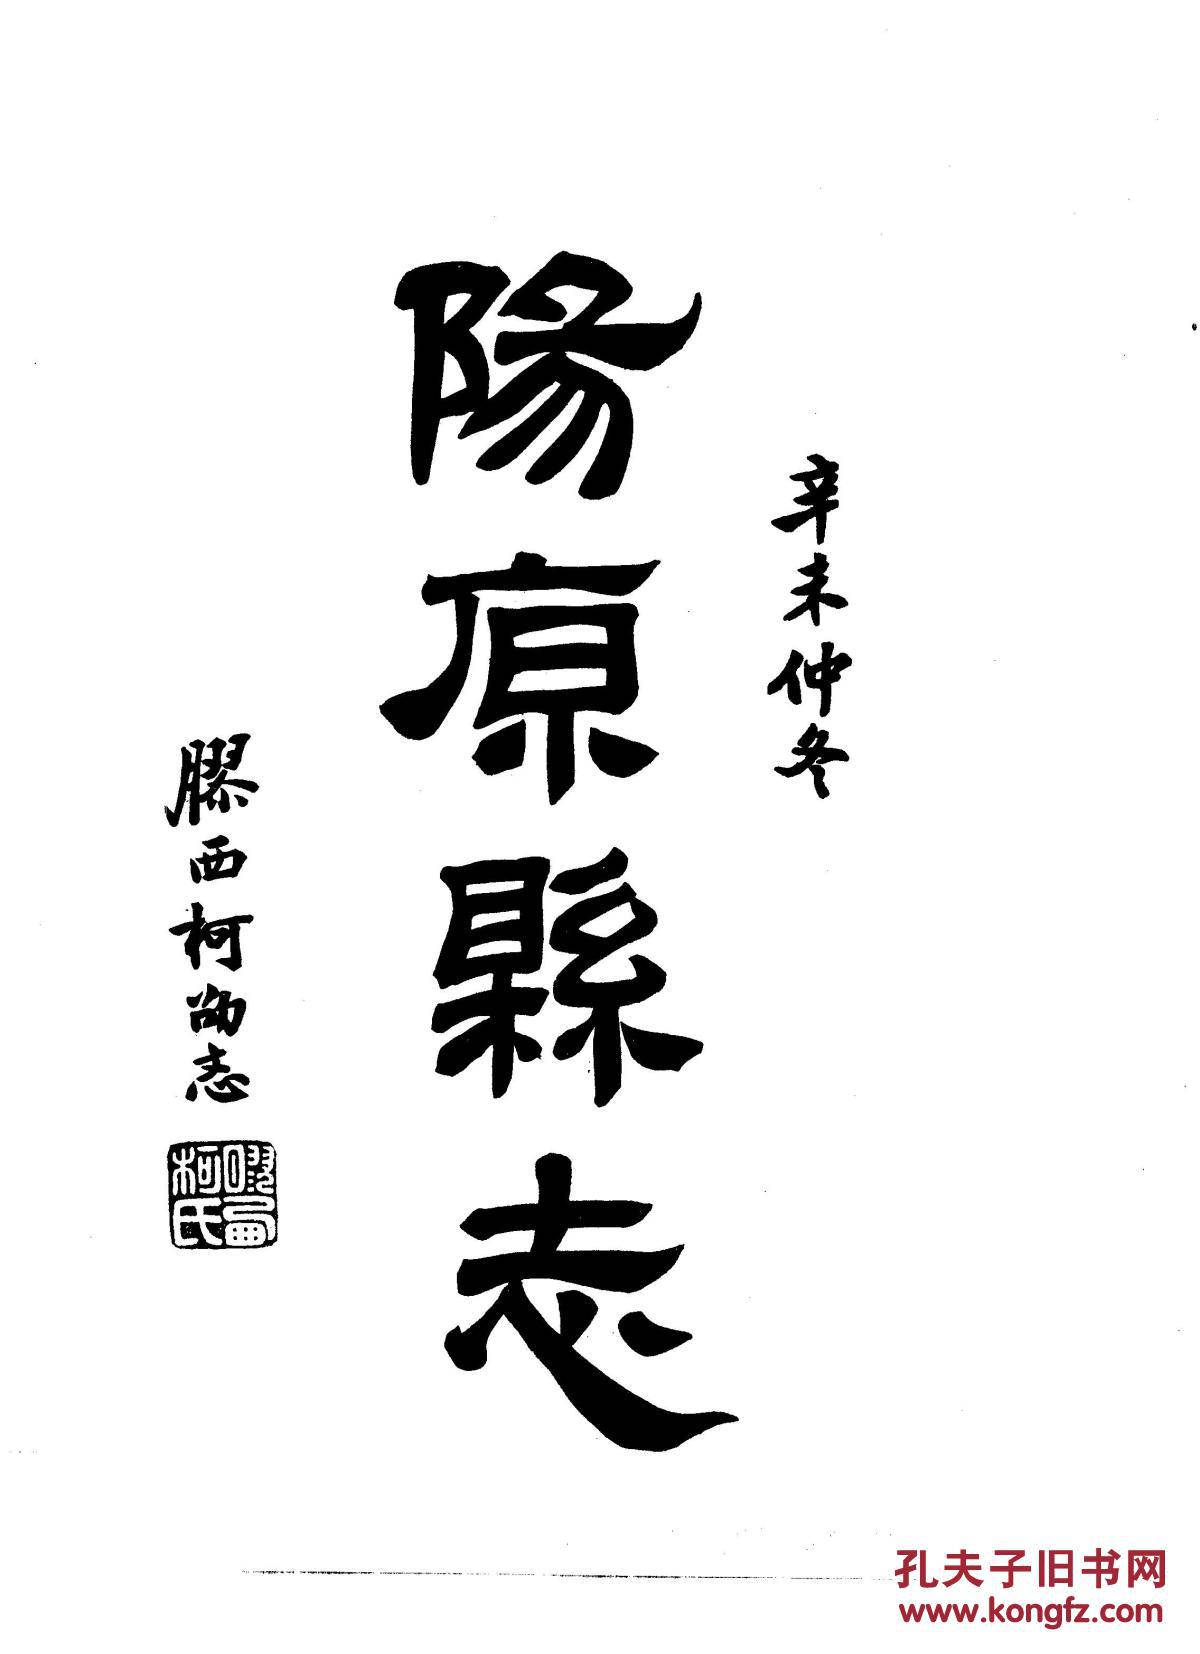 辛未仲冬
陽原縣志
膠西柯劭忞
柯氏
孔夫子旧书网
www.kongfz.com